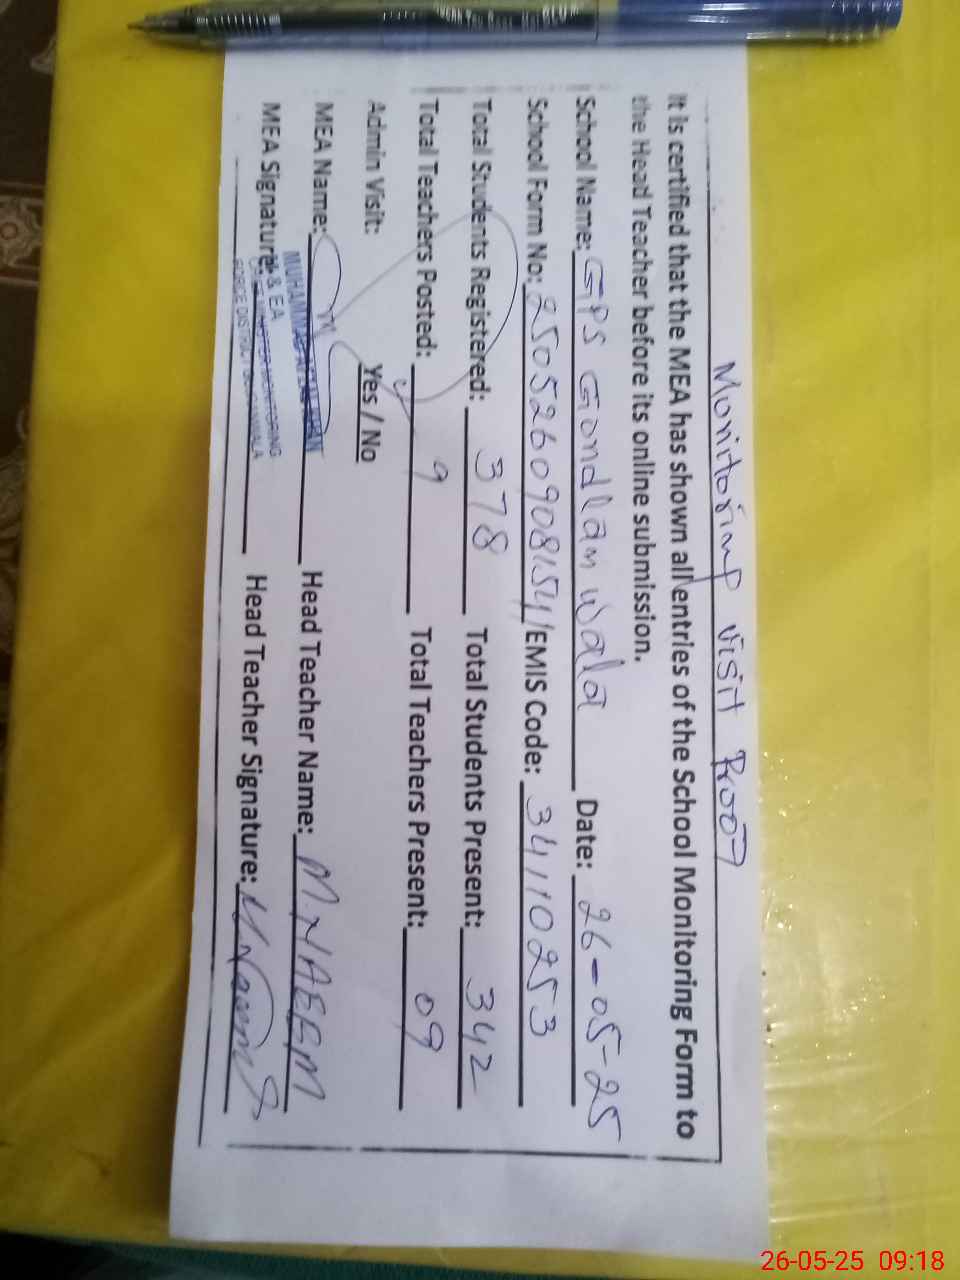 Monitoring visit Proof
It is certified that the MEA has shown all entries of the School Monitoring Form to
the Head Teacher before its online submission.
School Name: GPS Gondlanwala Date: 26-05-25
School Form No: EMIS Code: 34110253
Total Students Registered: 378 Total Students Present: 342
Total Teachers Posted: 9 Total Teachers Present: 09
Admin Visit: Yes / No
MEA Name: Head Teacher Name: M.NAEEM
MUHAMMAD KHAN
MEA Signature: Head Teacher Signature: M.Naeem
& EA
MONITORING
FORCE DISTRICT
26-05-25 09:18